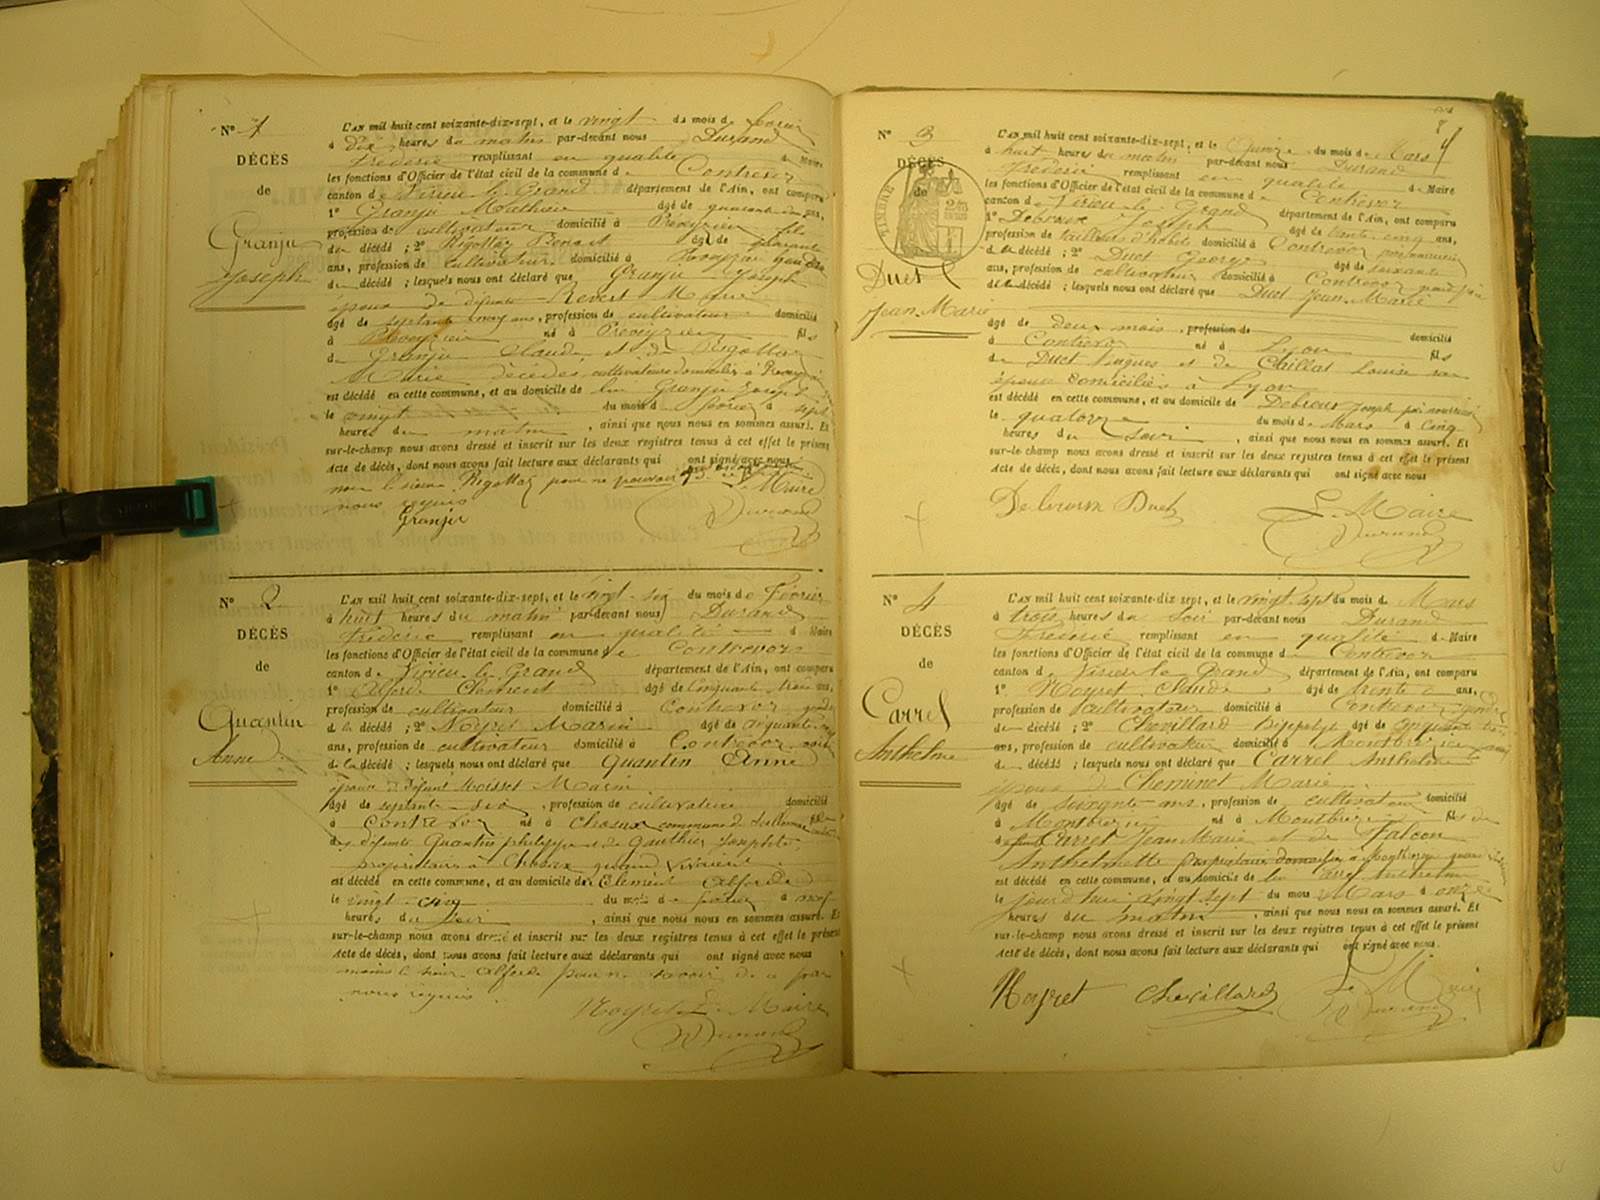 N° 1
DÉCÈS
de
Granju
Joseph
L'AN mil huit cent soixante-dix-sept, et le vingt du mois de février
à dix heures du matin par-devant nous Durand
Frédéric remplissant en qualité de Maire
les fonctions d'Officier de l'état civil de la commune de Contrevoz
canton de Virieu le Grand département de l'Ain, ont comparu
1° Granju Mathieu âgé de quarante deux ans,
profession de cultivateur domicilié à Préveyzieu fils
du décédé ; 2° Rigollaz Benoit âgé de quarante
ans, profession de cultivateur domicilié à
du décédé ; lesquels nous ont déclaré que Granju Joseph
époux de défunte Revert Marie
âgé de septante ans, profession de cultivateur domicilié
à Préveyzieu né à Préveyzieu fils
de Granju Claude et de Rigollaz
Marie décédés cultivateurs domiciliés à
est décédé en cette commune, et au domicile de lui Granju Joseph
le vingt du mois de février à sept
heures du matin, ainsi que nous nous en sommes assuré. Et
sur-le-champ nous avons dressé et inscrit sur les deux registres tenus à cet effet le présent
Acte de décès, dont nous avons fait lecture aux déclarants qui ont signé avec nous
non le sieur Rigollaz pour ne pouvoir Le Maire
nous requis
Granju Durand
N° 2
DÉCÈS
de
Quantin
Anne
L'AN mil huit cent soixante-dix-sept, et le vingt-six du mois de Février
à huit heures du matin par-devant nous Durand
Frédéric remplissant en qualité de Maire
les fonctions d'Officier de l'état civil de la commune de Contrevoz
canton de Virieu le Grand département de l'Ain, ont comparu
1° Alforde Clément âgé de Cinquante trois ans,
profession de cultivateur domicilié à Contrevoz gendre
de la décédé ; 2° Noyret Marin âgé de cinquante
ans, profession de cultivateur domicilié à Contrevoz voisin
de la décédé ; lesquels nous ont déclaré que Quantin Anne
épouse de défunt Moisset Marin
âgé de septante six, profession de cultivatrice domicilié
à Contrevoz né à Chosaz commune de fille
des défunts Quantin philippe et de Gauthier Josephte
propriétaires à Chosaz quand vivaient
est décédé en cette commune, et au domicile de Clément Alforde
le vingt-cinq du mois de février à neuf
heures du soir, ainsi que nous nous en sommes assuré. Et
sur-le-champ nous avons dressé et inscrit sur les deux registres tenus à cet effet le présent
Acte de décès, dont nous avons fait lecture aux déclarants qui ont signé avec nous
moins le sieur Alforde pour ne savoir de ce par
nous requis
Noyret Le Maire
Durand
N° 3
DÉCÈS
de
TIMBRE
Duet
Jean Marie
L'AN mil huit cent soixante-dix-sept, et le Quinze du mois de Mars
à huit heures du matin par-devant nous Durand
Frédéric remplissant en qualité de Maire
les fonctions d'Officier de l'état civil de la commune de Contrevoz
canton de Virieu le Grand département de l'Ain, ont comparu
1° Debreux Joseph âgé de trente cinq ans,
profession de tailleur d'habits domicilié à Contrevoz père nourricier
du décédé ; 2° Duet George âgé de soixante
ans, profession de cultivateur domicilié à Contrevoz
du décédé ; lesquels nous ont déclaré que Duet Jean Marie
âgé de deux mois, profession de domicilié
à Contrevoz né à Lyon fils
de Duet Hugues et de Caillat Louise son
épouse domiciliés à Lyon
est décédé en cette commune, et au domicile de Debreux Joseph père nourricier
le quatorze du mois de Mars à Cinq
heures du soir, ainsi que nous nous en sommes assuré. Et
sur-le-champ nous avons dressé et inscrit sur les deux registres tenus à cet effet le présent
Acte de décès, dont nous avons fait lecture aux déclarants qui ont signé avec nous
Duet Le Maire
Durand
N° 4
DÉCÈS
de
Carrel
Anthelme
L'AN mil huit cent soixante-dix sept, et le vingt-sept du mois de Mars
à trois heures du soir par-devant nous Durand
Frédéric remplissant en qualité de Maire
les fonctions d'Officier de l'état civil de la commune de Contrevoz
canton de Virieu le Grand département de l'Ain, ont comparu
1° Noyret Claude âgé de trente ans,
profession de cultivateur domicilié à Contrevoz gendre
du décédé ; 2° Chevillard Hippolyte âgé de cinquante
ans, profession de cultivateur domicilié à
du décédé ; lesquels nous ont déclaré que Carrel Anthelme
époux de Cheminet Marie
âgé de soixante ans, profession de cultivateur domicilié
à né à fils de
Carrel Jean Marie et de Falcon
Anthelmette propriétaires domiciliés à
est décédé en cette commune, et au domicile de lui Carrel Anthelme
le jourd'hui vingt sept du mois Mars à onze
heures du matin, ainsi que nous nous en sommes assuré. Et
sur-le-champ nous avons dressé et inscrit sur les deux registres tenus à cet effet le présent
Acte de décès, dont nous avons fait lecture aux déclarants qui ont signé avec nous.
Noyret Chevillard Le Maire
Durand